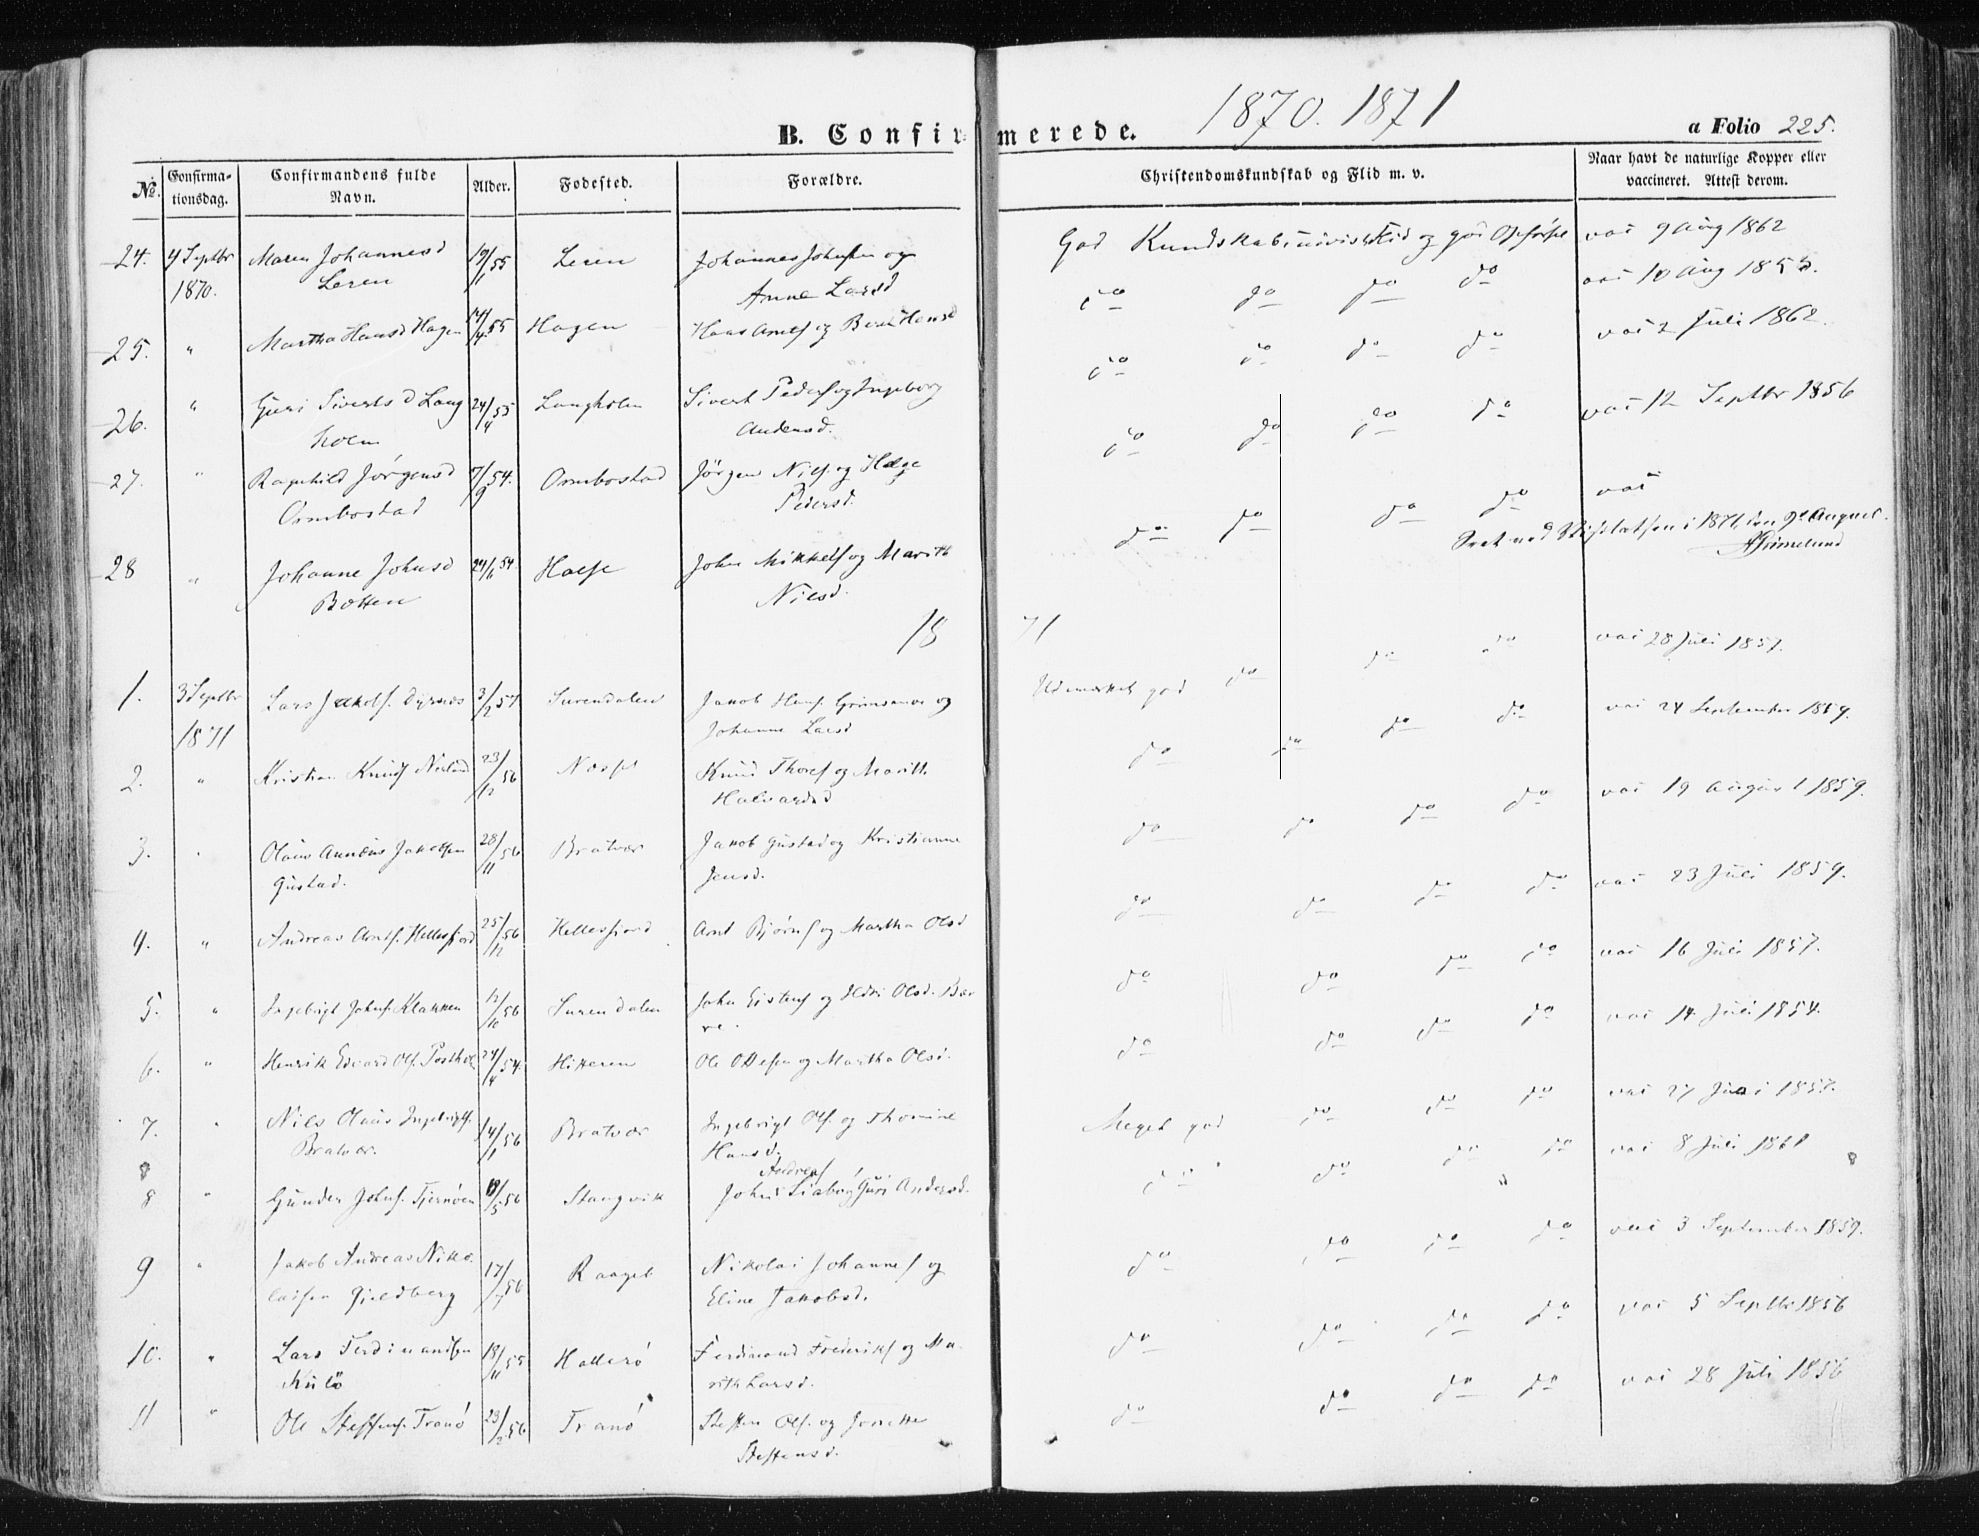 1870. 1871
B. Confirmerede.
a Folio 225.
№. Confirmationsdag. Confirmandens fulde Navn. Alder. Fødested. Forældre. Christendomskundskab og Flid m. v. Naar havt de naturlige Kopper eller vaccineret. Attest derom.
24. 4 Septbr Maren Johannesd 19/1 55 Leren Johannes Johnsen og God Kundskab Flid og god Opførsel vac 9 Aug 1862
1870. Leren Anne Larsd do do do do vac 10 Aug 1855.
25. " Martha Hansd Hagen 14/4 55 Hagen Hans og Hansd do do do do vac 2 Juli 1862.
26. " Guri Sivertsd Lang 24/4 55 Langholen Sivert Peders og Ingeborg do do do do vac 12 Septbr 1856
holen Andersd.
27. " Ragnhild Jørgensd 7/9 54. Ormbostad Jørgen Nils. og Helge do do do do vac
Ormbostad Pedersd.
i 1871, den 9de August.
28 " Johanne Johnsd 24/6 54. Halse John Mikkels og Marith
Botten Nilsd.
1871
1. 3 Septbr Lars Jakobs. Dyrnæs 3/2 57 Surendalen Jakob Hans. og Udmærket god do do do vac 28 Juli 1857.
1871 Johanne Larsd
2. " Kristian Knuds 23/12 56 Næsset Knud Thores og Marith do do do do vac 24 September 1859.
Halvardsd
3. " Olaus Jakobsen 28/11 56 Bratvær Jakob Gustad og Kristianne do do do do vac 19 August 1859.
Gustad. Jensd.
4. " Andreas Arnts. Hellesfjord 25/12 56 Hellesfjord Arnt Bjørns og Martha Olsd do do do do vac 23 Juli 1859.
5. " Ingebrigt Johns. Klakken 12/10 56 Surendalen John og Olsd. do do do do vac 16 Juli 1857.
6. " Henrik Edvard Ols. 24/4 54. Hitteren Ole Ottesen og Martha Olsd. do do do do vac 14 Juli 1854.
7. " Nils Olaus Ingebrigts. 14/1 56 Bratvær Ingebrigt Ols. og Thomine Meget god do do do vac 27 1857.
Bratvær. Hansd.
8
Andreas
8 " Gunder Johns. Tjernøen 5 56 Stangvik John Guri Andersd. do do do do vac 8 Juli 1861
9 " Jakob Andreas Niko 17/7 56 Nikolai Johannes og do do do do vac 3 September 1859.
laisen Gjeldberg Eline Jakobsd.
10. " Lars Ferdinandsen 18/11 55 Ferdinand Frederiks og Ma do do do do vac 5 Septbr 1856
Kulø rith Larsd.
11 " Ole Steffens. Tranø 23/2 56 Tranø Steffen Ols. og Jonette do do do do vac 28 Juli 1856
Steffensd.